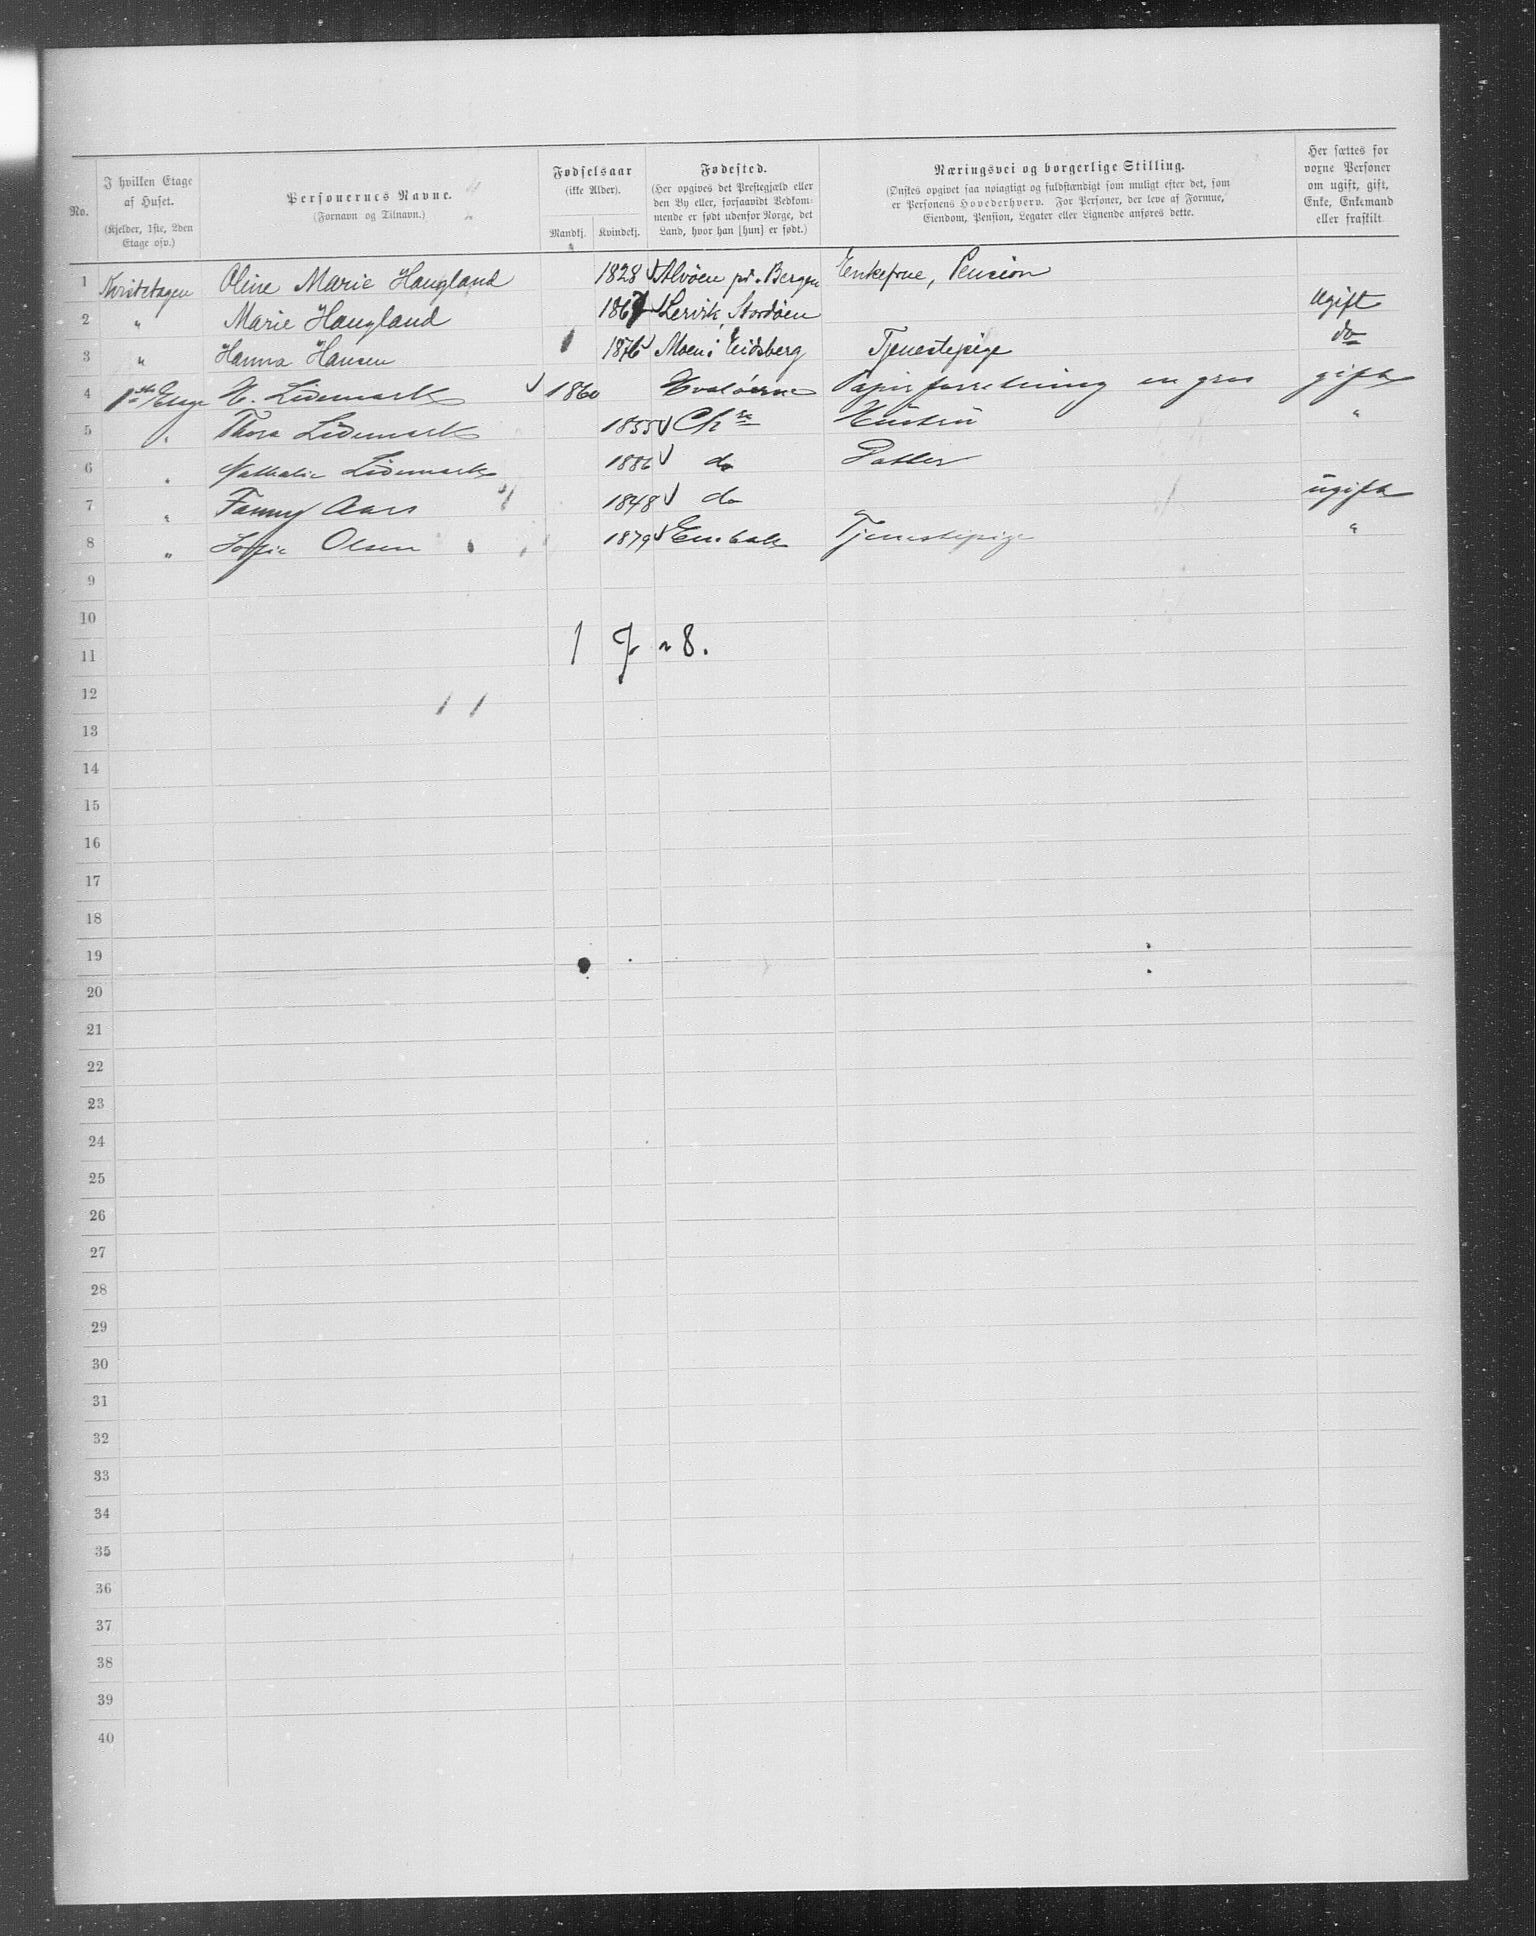 No.
I hvilken Etage af Huset.
(Kjelder, 1ste, 2den Etage osv.)
Personernes Navne.
(Fornavn og Tilnavn.)
Fødselsaar
(ikke Alder).
Mandkj. Kvindekj.
Fødested.
(Her opgives det Prestegjæld eller
den By eller, forsaavidt Vedkom-
mende er født udenfor Norge, det
Land, hvor han [hun] er født.)
Næringsvei og borgerlige Stilling.
(Ønskes opgivet saa nøiagtigt og fuldstændigt som muligt efter det, som
er Personens Hovederhverv. For Personer, der leve af Formue,
Eiendom, Pension, Legater eller Lignende anføres dette.
Her sættes for
voxne Personer
om ugift, gift,
Enke, Enkemand
eller fraskilt
1 Oline Marie Haugland 1828 Alvöen pr. Bergen Enkefrue, Pension
2 " Marie Haugland Lervik, Stordöen Ugift
3 " Hanna Hansen 1876 Moen i Eidsberg Tjenestepige do
4 1ste Etage H. Lidemark 1860 Hvaløerne Papirforretning en gros gift
5 " Thora Lidemark 1855 Chra Hustru "
6 " Nathalie Lidemark 1886 do Datter
7 " Fanny Aars 1848 do ugift
8 " Sofie Olsen 1879 Enebak Tjenestepige "
9
10
11 1 7 = 8.
12
13
14
15
16
17
18
19
20
21
22
23
24
25
26
27
28
29
30
31
32
33
34
35
36
37
38
39
40